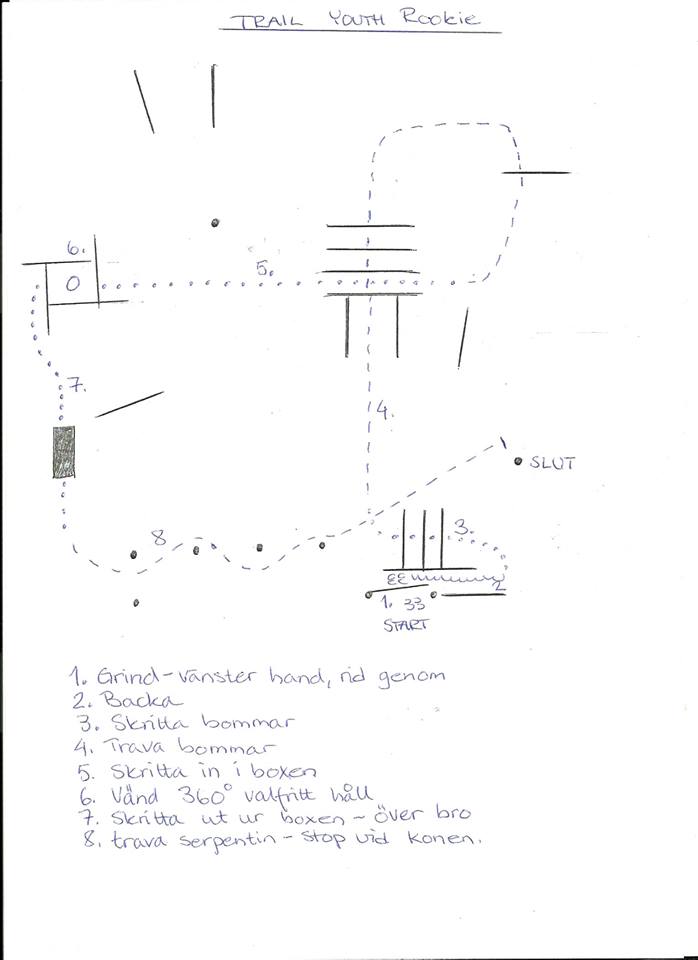 TRAIL YOUTH Rookie
6.
0
5.
7.
4.
SLUT
8
3.
2
1. 33
START
1. Grind - vänster hand, rid genom
2. Backa
3. Skritta bommar
4. Trava bommar
5. Skritta in i boxen
6. Vänd 360° valfritt håll
7. Skritta ut ur boxen - över bro
8. trava serpentin - stop vid konen.